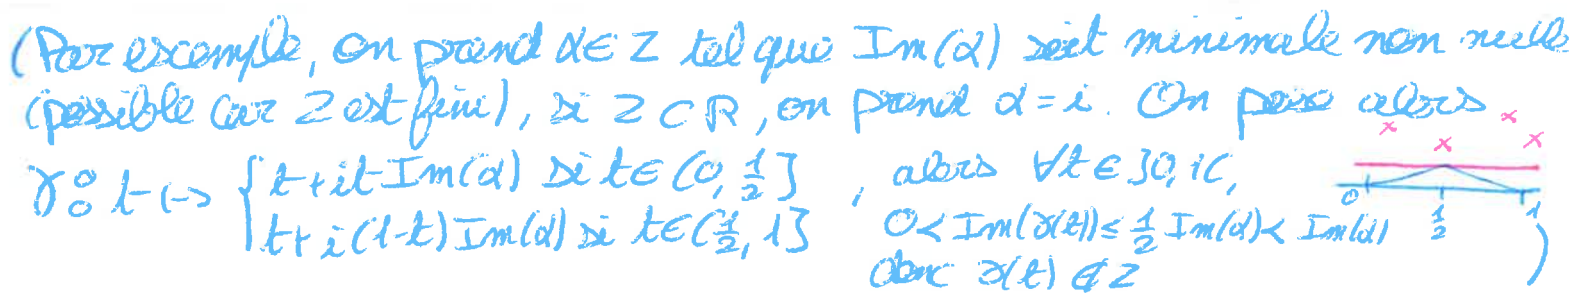 (Par exemple, on prend α ∈ Z tel que Im(α) soit minimale non nulle
(possible car Z est fini), si Z ⊂ R, on prend α = i. On pose alors
γ : t ↦ { t + it Im(α) si t ∈ [0, 1/2]
t + i(1-t) Im(α) si t ∈ [1/2, 1] , alors ∀t ∈ ]0, 1[,
0 < Im(γ(t)) ≤ 1/2 Im(α) < Im(α)
donc γ(t) ∉ Z )
0 1/2 1